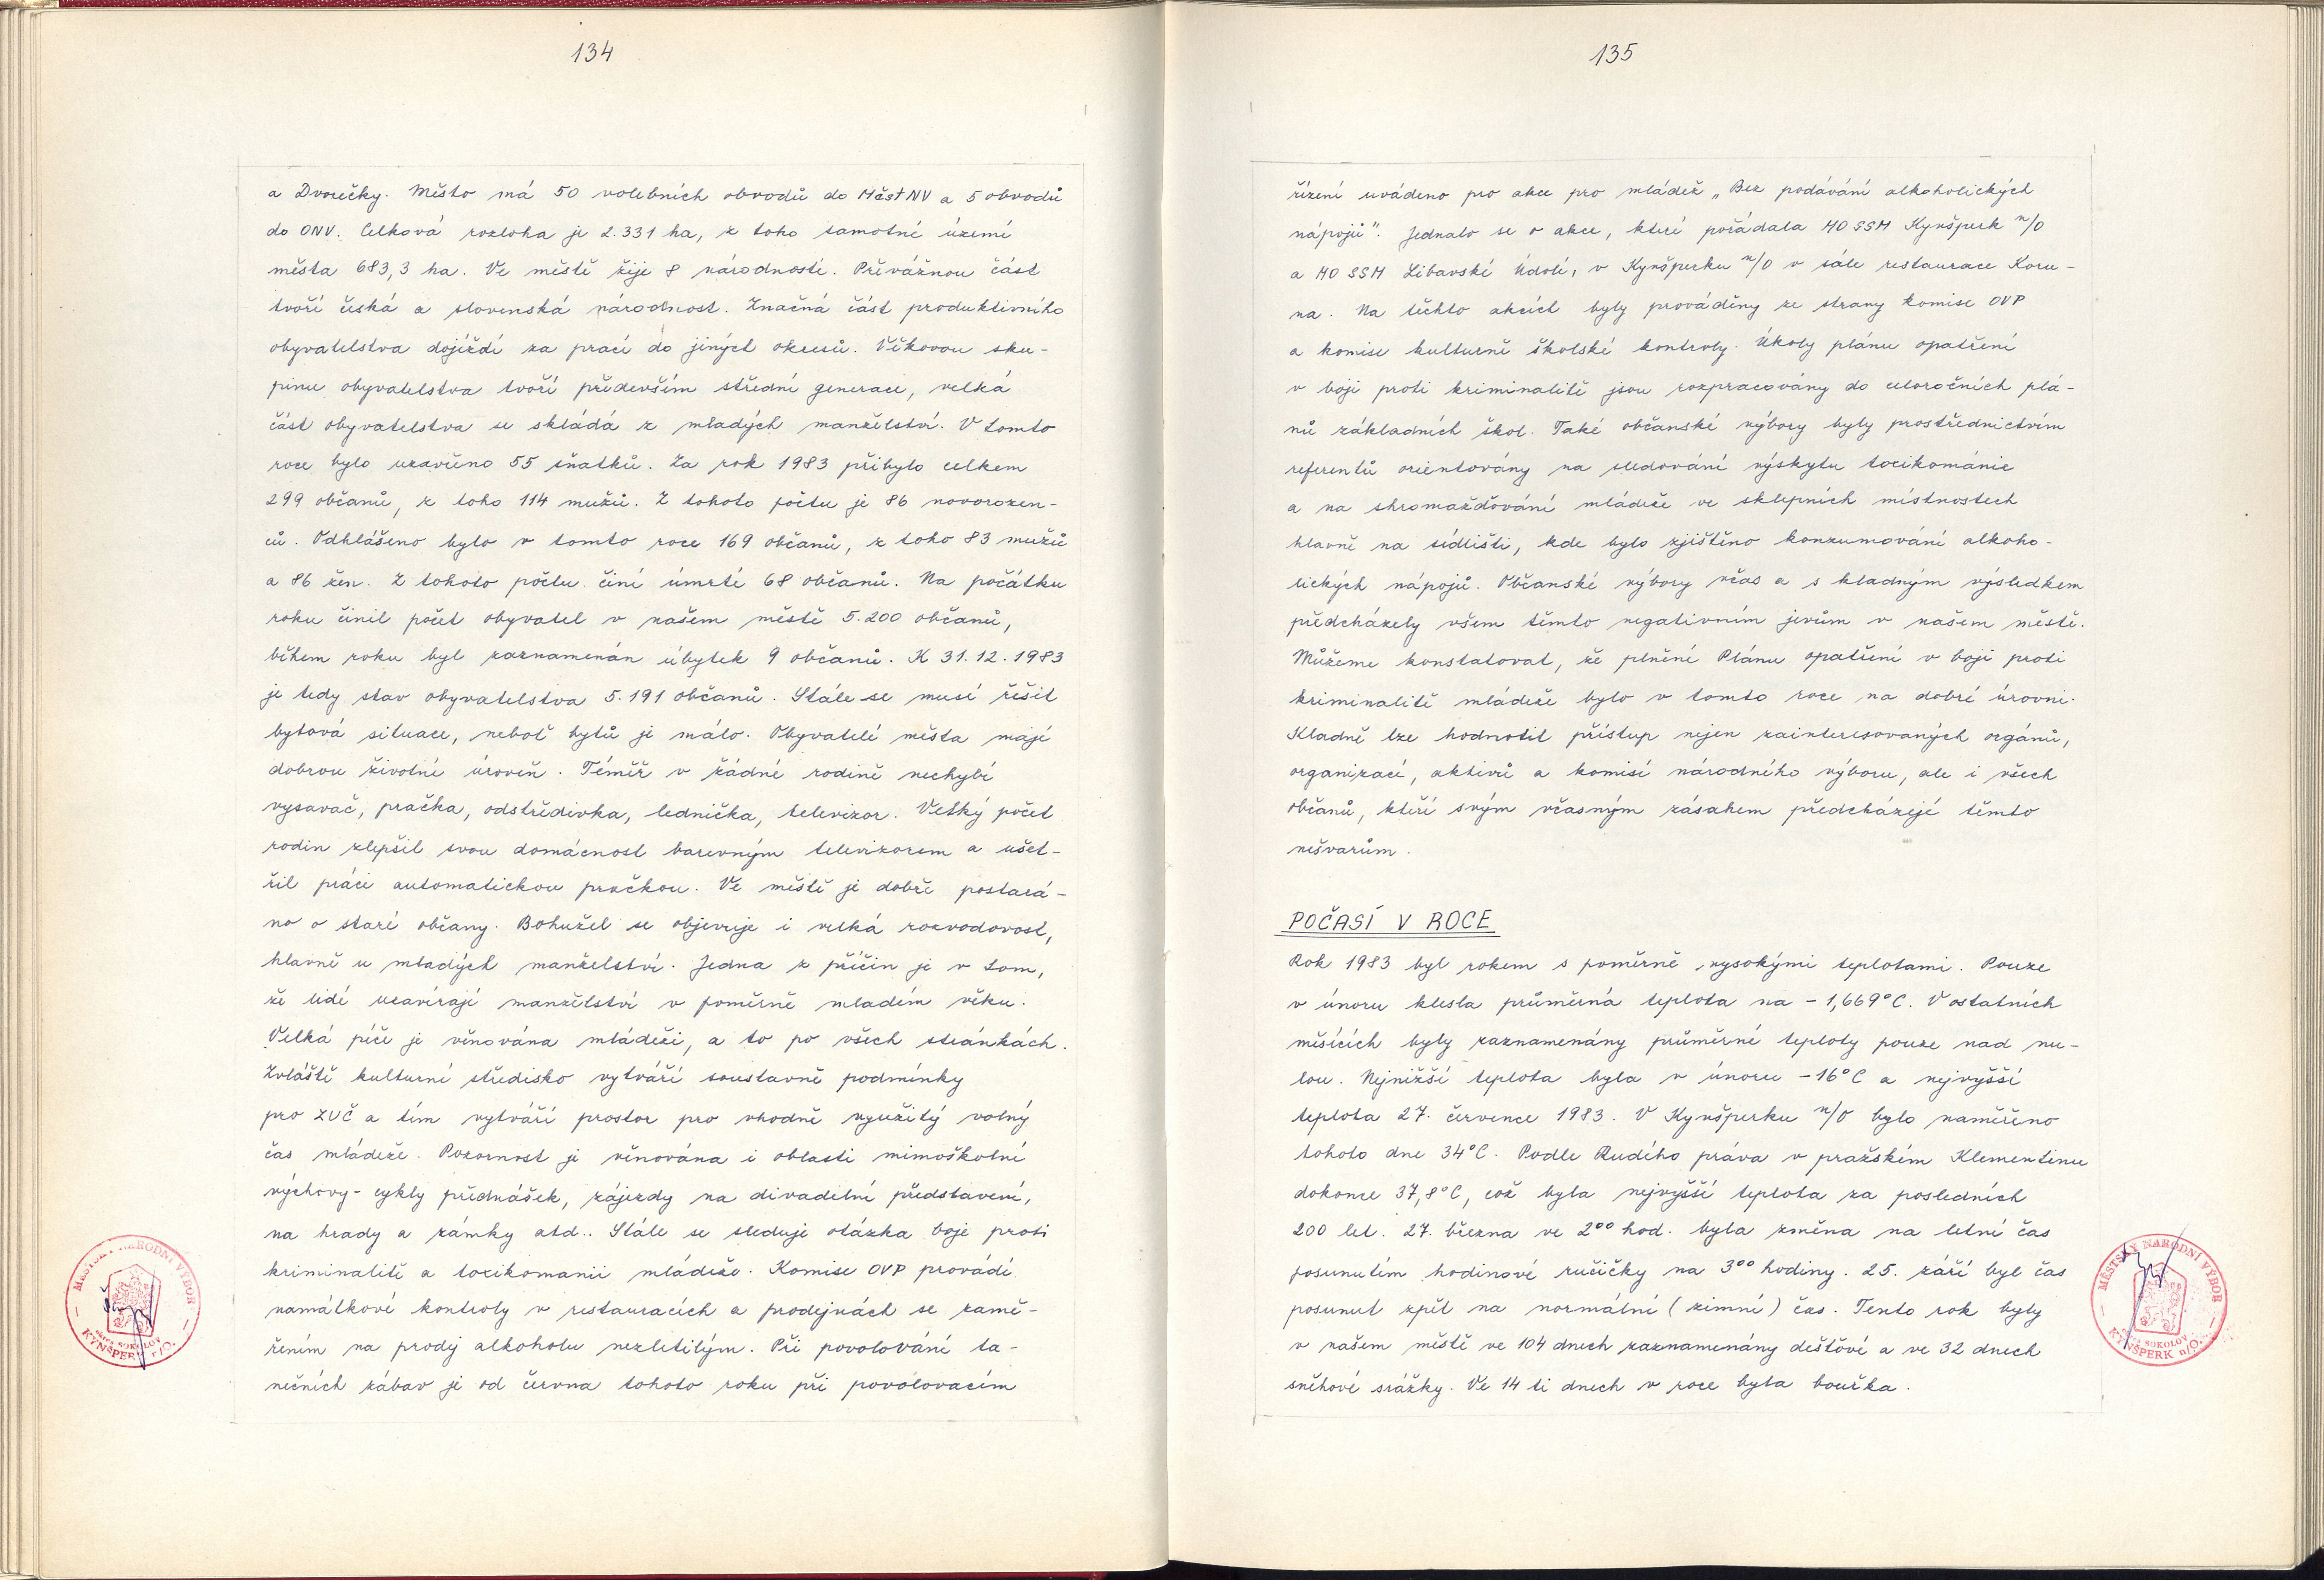 134
a Dvorečky. Město má 50 volebních obvodů do MěstNV a 5 obvodů
do ONV. Celková rozloha je 2.331 ha, z toho samotné území
města 683,3 ha. Ve městě žije 8 národností. Převážnou část
tvoří česká a slovenská národnost. Značná část produktivního
obyvatelstva dojíždí za prací do jiných okresů. Věkovou sku-
pinu obyvatelstva tvoří především střední generace, velká
část obyvatelstva se skládá z mladých manželství. V tomto
roce bylo uzavřeno 55 sňatků. Za rok 1983 přibylo celkem
299 občanů, z toho 114 mužů. Z tohoto počtu je 86 novorozen-
ců. Odhlášeno bylo v tomto roce 169 občanů, z toho 83 mužů
a 86 žen. Z tohoto počtu činí úmrtí 68 občanů. Na počátku
roku činil počet obyvatel v našem městě 5.200 občanů,
během roku byl zaznamenán úbytek 9 občanů. K 31.12.1983
je tedy stav obyvatelstva 5.191 občanů. Stále se musí řešit
bytová situace, neboť bytů je málo. Obyvatelé města mají
dobrou životní úroveň. Téměř v žádné rodině nechybí
vysavač, pračka, odstředivka, lednička, televizor. Velký počet
rodin zlepšil svou domácnost barevným televizorem a ušet-
řil práci automatickou pračkou. Ve městě je dobře postará-
no o staré občany. Bohužel se objevuje i velká rozvodovost,
hlavně u mladých manželství. Jedna z příčin je v tom,
že lidé uzavírají manželství v poměrně mladém věku.
Velká péče je věnována mládeži, a to po všech stránkách.
Zvláště kulturní středisko vytváří soustavně podmínky
pro ZUČ a tím vytváří prostor pro vhodně využitý volný
čas mládeže. Pozornost je věnována i oblasti mimoškolní
výchovy - cykly přednášek, zájezdy na divadelní představení,
na hrady a zámky atd.. Stále se sleduje otázka boje proti
kriminalitě a toxikomanii mládeže. Komise OVP provádí
namátkové kontroly v restauracích a prodejnách se zamě-
řením na prodej alkoholu nezletilým. Při povolování ta-
nečních zábav je od června tohoto roku při povolovacím
MĚSTSKÝ NÁRODNÍ VÝBOR
okres SOKOLOV
KYNŠPERK n/O.
135
řízení uváděno pro akce pro mládež „Bez podávání alkoholických
nápojů". Jednalo se o akce, které pořádala MO SSM Kynšperk n/O
a MO SSM Libavské Údolí, v Kynšperku n/O v sále restaurace Koru-
na. Na těchto akcích byly prováděny ze strany komise OVP
a komise kulturně školské kontroly. Úkoly plánu opatření
v boji proti kriminalitě jsou rozpracovány do celoročních plá-
nů základních škol. Také občanské výbory byly prostřednictvím
referentů orientovány na sledování výskytu toxikománie
a na shromažďování mládeže ve sklepních místnostech
hlavně na sídlišti, kde bylo zjištěno konzumování alkoho-
lických nápojů. Občanské výbory včas a s kladným výsledkem
předcházely všem těmto negativním jevům v našem městě.
Můžeme konstatovat, že plnění Plánu opatření v boji proti
kriminalitě mládeže bylo v tomto roce na dobré úrovni.
Kladně lze hodnotit přístup nejen zainteresovaných orgánů,
organizací, aktivů a komisí národního výboru, ale i všech
občanů, kteří svým včasným zásahem předcházejí těmto
nešvarům.
POČASÍ V ROCE
Rok 1983 byl rokem s poměrně vysokými teplotami. Pouze
v únoru klesla průměrná teplota na -1,669°C. V ostatních
měsících byly zaznamenány průměrné teploty pouze nad nu-
lou. Nejnižší teplota byla v únoru -16°C a nejvyšší
teplota 27. července 1983. V Kynšperku n/O bylo naměřeno
tohoto dne 34°C. Podle Rudého práva v pražském Klementinu
dokonce 37,8°C, což byla nejvyšší teplota za posledních
200 let. 27. března ve 2⁰⁰ hod. byla změna na letní čas
posunutím hodinové ručičky na 3⁰⁰ hodiny. 25. září byl čas
posunut zpět na normální (zimní) čas. Tento rok byly
v našem městě ve 104 dnech zaznamenány dešťové a ve 32 dnech
sněhové srážky. Ve 14 ti dnech v roce byla bouřka.
MĚSTSKÝ NÁRODNÍ VÝBOR
okres SOKOLOV
KYNŠPERK n/O.